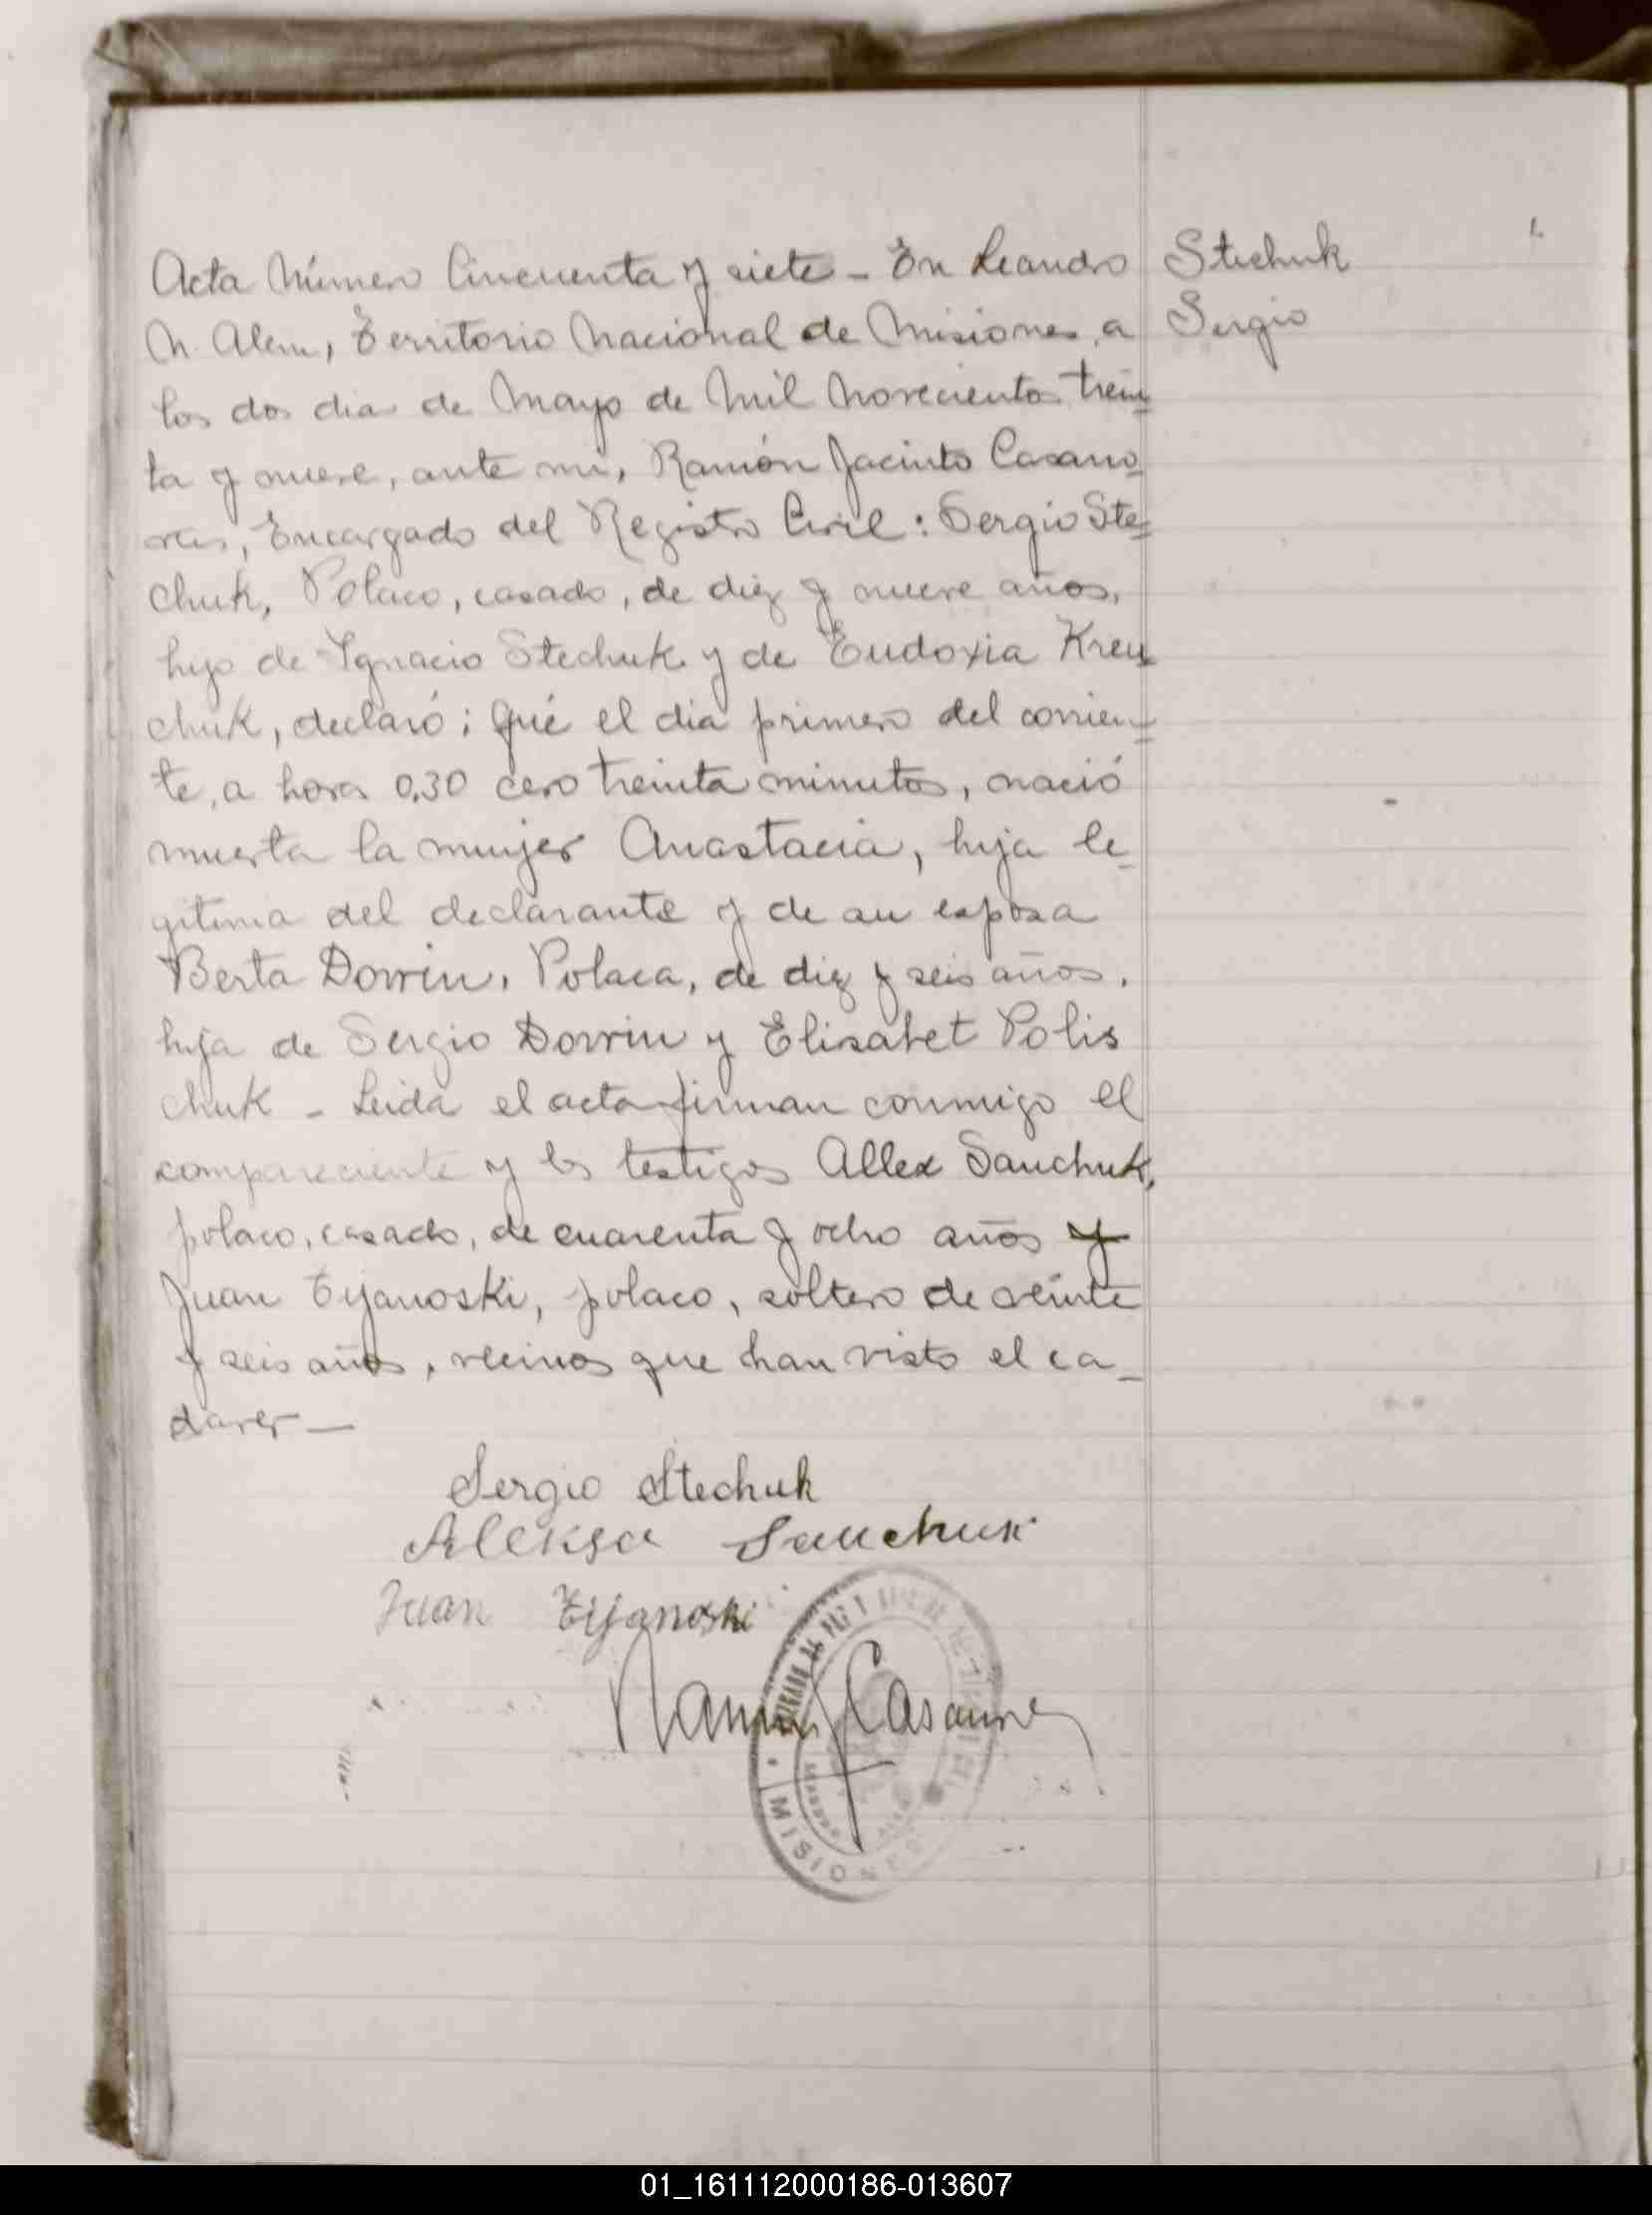 Acta Número Cincuenta y siete - En Leandro
N. Alem, Territorio Nacional de Misiones, a
los dos dias de Mayo de Mil Novecientos trein=
ta y nueve, ante mi, Ramón Jacinto Casano=
vas, Encargado del Registro Civil: Sergio Ste=
chuk, Polaco, casado, de diez y nueve años,
hijo de Ignacio Stechuk y de Eudoxia Kreu=
chuk, declaró; Qué el dia primero del corrien=
te, a horas 0,30 cero treinta minutos, nació
muerta la mujer Anastacia, hija le=
gitima del declarante y de su esposa
Berta Dowin, Polaca, de diez y seis años,
hija de Sergio Dowin y Elisabet Polis
chuk - Leida el acta firman conmigo el
compareciente y los testigos Allex Sauchuk,
polaco, casado, de cuarenta y ocho años y
Juan Tyanoski, polaco, soltero de veinte
y seis años, vecinos que han visto el ca_
daver —
Stechuk
Sergio
Sergio Stechuk
Aleksa Sauchuk
Juan Tyanoski
Ramón J Casanovas
JUZGADO DE PAZ Y
MISIONES
01_161112000186-013607